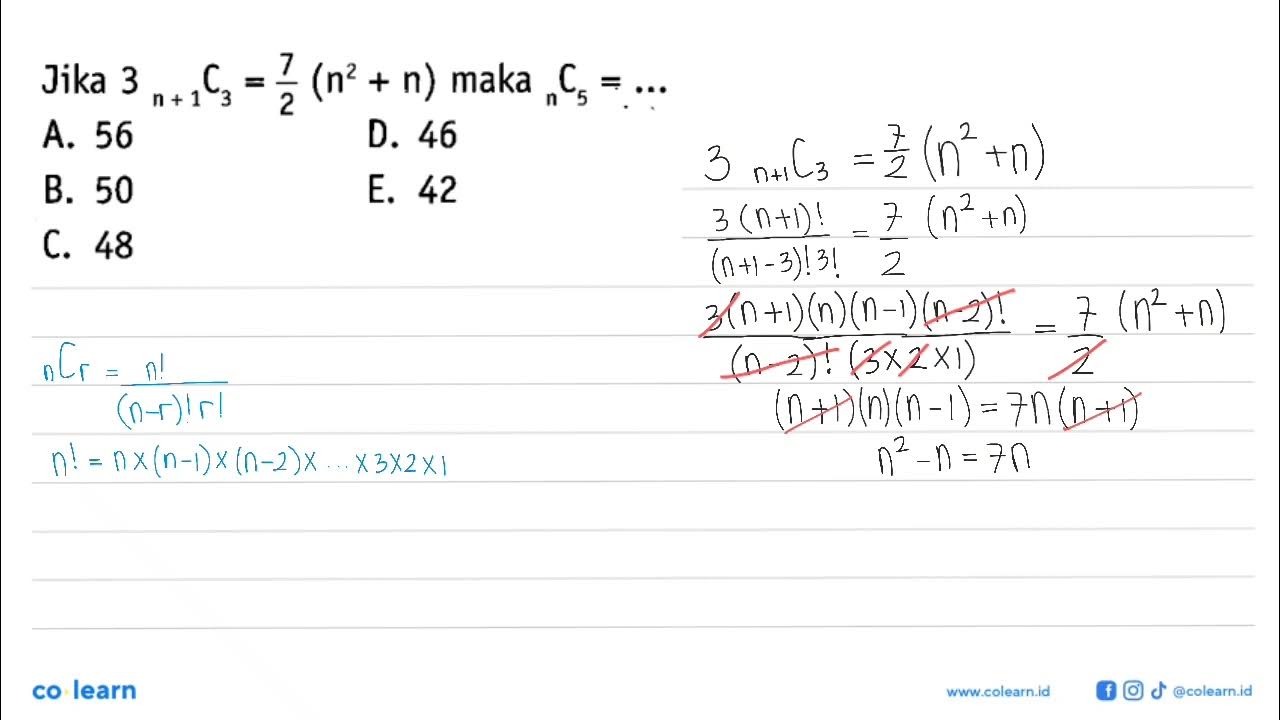 Jika 3 n+1C3 = 7/2 (n² + n) maka nC5 = ...
A. 56
D. 46
B. 50
E. 42
C. 48
3 n+1C3 = 7/2 (n² + n)
3(n+1)!/(n+1-3)!3! = 7/2 (n²+n)
3(n+1)(n)(n-1)(n-2)!/(n-2)!(3×2×1) = 7/2 (n²+n)
(n+1)(n)(n-1) = 7n(n+1)
n² - n = 7n
nCr = n!/(n-r)!r!
n! = n×(n-1)×(n-2)× ... ×3×2×1
co learn
www.colearn.id
@colearn.id